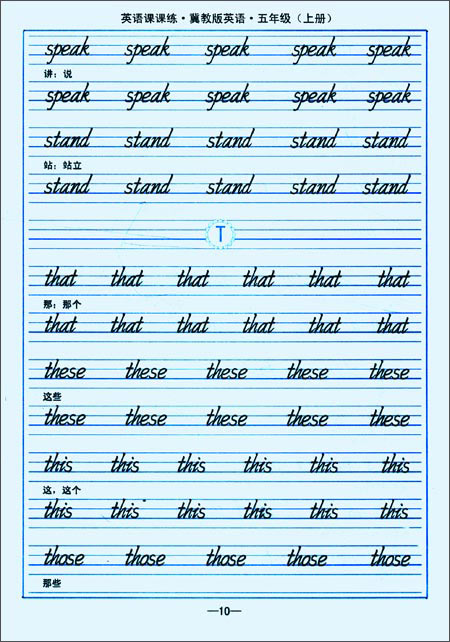 英语课课练·冀教版英语·五年级（上册）
speak speak speak speak speak
讲；说
speak speak speak speak speak
stand stand stand stand stand
站；站立
stand stand stand stand stand
T
that that that that that that
那；那个
that that that that that that
these these these these these
这些
these these these these these
this this this this this this
这，这个
this this this this this this
those those those those those
那些
—10—